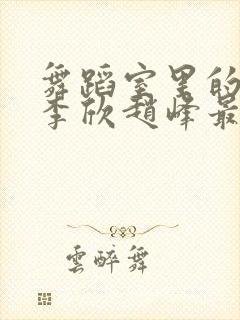 舞蹈室里的
李欣趙峰最
雲醉舞